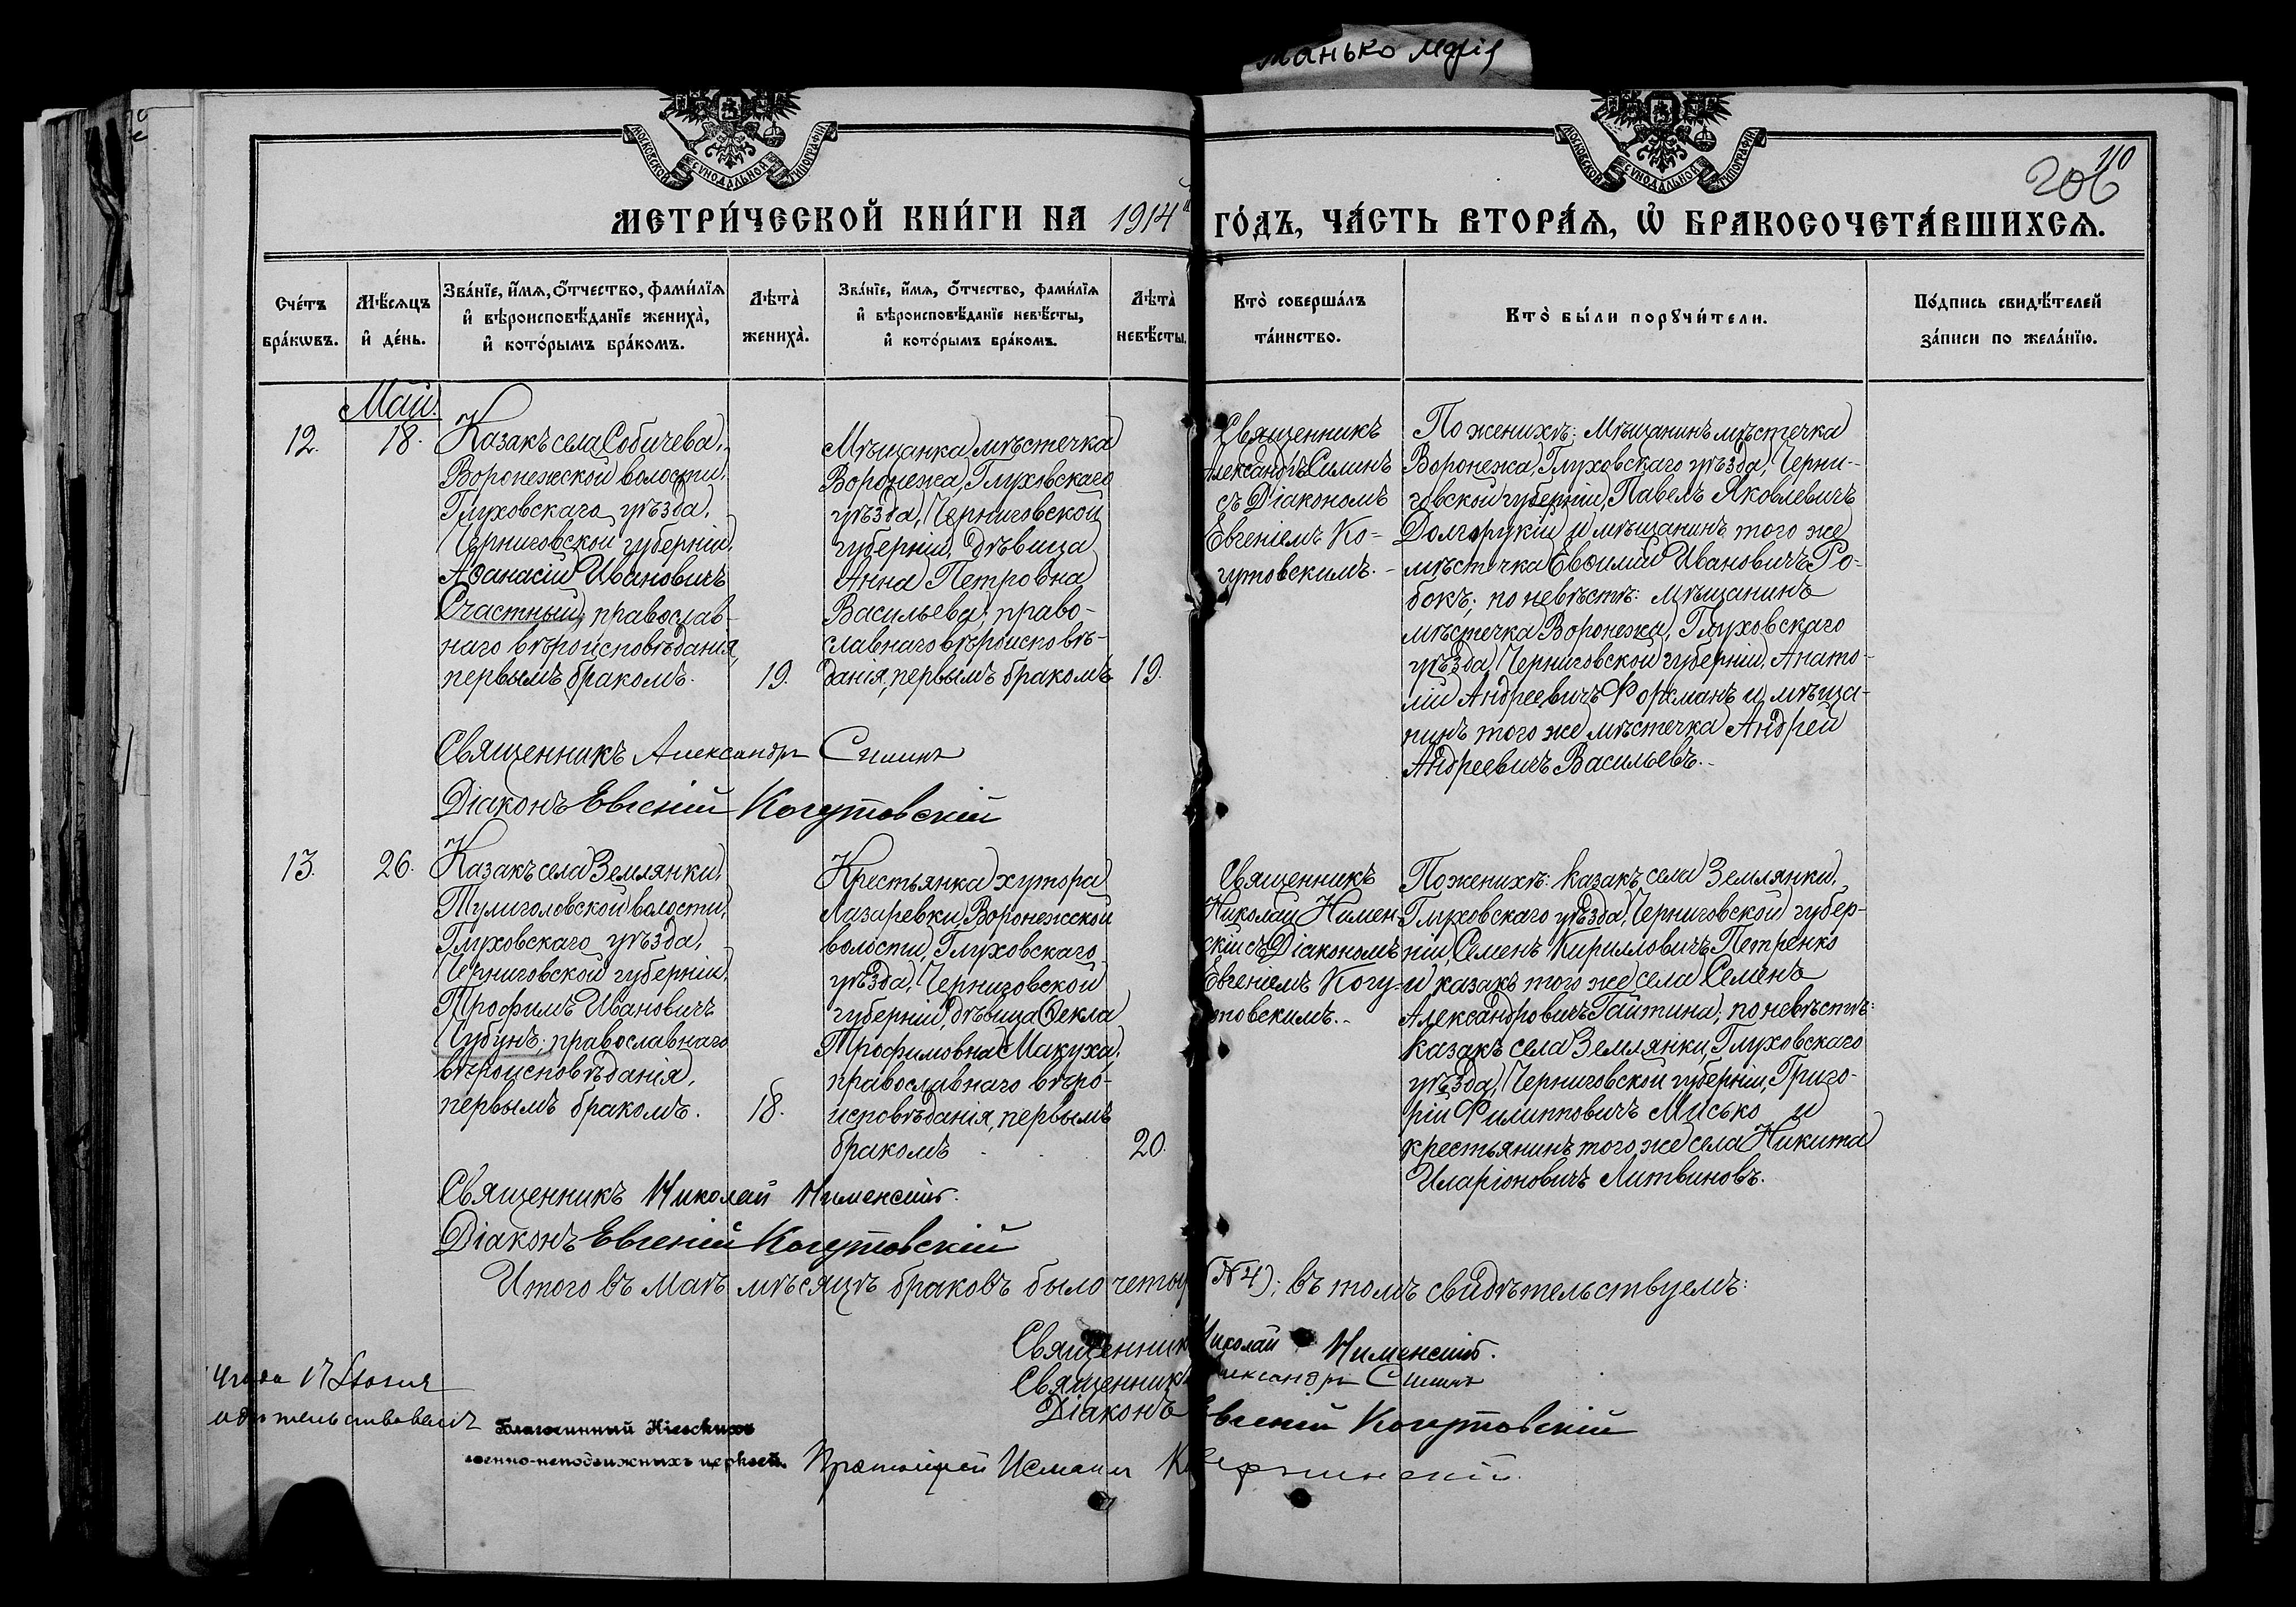 манько марія
МОСКОВСКОЙ СѴНОДАЛЬНОЙ ТИПОГРАФІИ
МОСКОВСКОЙ СѴНОДАЛЬНОЙ ТИПОГРАФІИ
110
206
МЕТРИ́ЧЕСКОЙ КНИ́ГИ НА 1914й ГО́ДЪ, ЧА́СТЬ ВТОРА́Ѧ, Ѡ БРАКОСОЧЕТА́ВШИХСѦ.
Сче́тъ
бра́кѡвъ.
Мѣ́сяцъ
и де́нь.
Зва́нїе, и́мѧ, о́тчество, фами́лїѧ
и҆ вѣроисповѣ́данїе жениха̀,
и҆ кото́рымъ бра́комъ.
Лѣта̀
жениха̀.
Зва́нїе, и́мѧ, о́тчество, фами́лїѧ
и҆ вѣроисповѣ́данїе невѣ́сты,
и҆ кото́рымъ бра́комъ.
Лѣта̀
невѣ́сты.
Кто̀ соверша́лъ
та́инство.
Кто̀ бы́ли порꙋчи́тели.
По́дпись свидѣ́телей
за́писи по жела́нїю.
Май.
12.
18.
Казакъ села Собичева,
Воронежской волости,
Глуховскаго уѣзда,
Черниговской губерніи,
Аѳанасій Ивановичъ
Счастный, православ-
наго вѣроисповѣданія,
первымъ бракомъ.
19.
Мѣщанка мѣстечка
Воронежа, Глуховскаго
уѣзда, Черниговской
губерніи, дѣвица
Анна Петровна
Васильева, право-
славнаго вѣроисповѣ-
данія, первымъ бракомъ
19.
Священникъ
Александръ Силинъ
съ Діакономъ
Евгеніемъ Ко-
гутовскимъ.
По женихѣ: мѣщанинъ мѣстечка
Воронежа, Глуховскаго уѣзда, Черни-
говской губерніи, Павелъ Яковлевичъ
Долгорукій и мѣщанинъ того же
мѣстечка Евѳимій Ивановичъ Ро-
бокъ; по невѣстѣ: мѣщанинъ
мѣстечка Воронежа, Глуховскаго
уѣзда, Черниговской губерніи, Анато-
лій Андреевичъ Форманъ и мѣща-
нинъ того же мѣстечка Андрей
Андреевичъ Васильевъ.
Священникъ Александръ Силинъ
Діаконъ Евгеній Когутовскій
13.
26.
Казакъ села Землянки,
Тулиголовской волости,
Глуховскаго уѣзда,
Черниговской губерніи,
Трофимъ Ивановичъ
Чубунъ, православнаго
вѣроисповѣданія,
первымъ бракомъ.
18.
Крестьянка хутора
Лазаревки, Воронежской
волости, Глуховскаго
уѣзда, Черниговской
губерніи, дѣвица Ѳекла
Трофимовна Макуха,
православнаго вѣро-
исповѣданія, первымъ
бракомъ
20.
Священникъ
Николай Нимен-
скій съ Діакономъ
Евгеніемъ Когу-
товскимъ.
По женихѣ: казакъ села Землянки,
Глуховскаго уѣзда, Черниговской губер-
ніи, Семенъ Кирилловичъ Петренко
и казакъ того же села Семенъ
Александровичъ Гайтина; по невѣстѣ:
казакъ села Землянки, Глуховскаго
уѣзда, Черниговской губерніи, Григо-
рій Филипповичъ Мисько и
крестьянинъ того же села Никита
Иларіоновичъ Литвиновъ.
Священникъ Николай Нименскій.
Діаконъ Евгеній Когутовскій
Итого въ маѣ мѣсяцѣ браковъ было четыр (№4); въ томъ свидѣтельствуемъ:
Священникъ Николай Нименскій.
Священникъ Александръ Силинъ
Діаконъ Евгеній Когутовскій
Благочинный Кіевскихъ
военно-неподвижныхъ церквей, Протоіерей